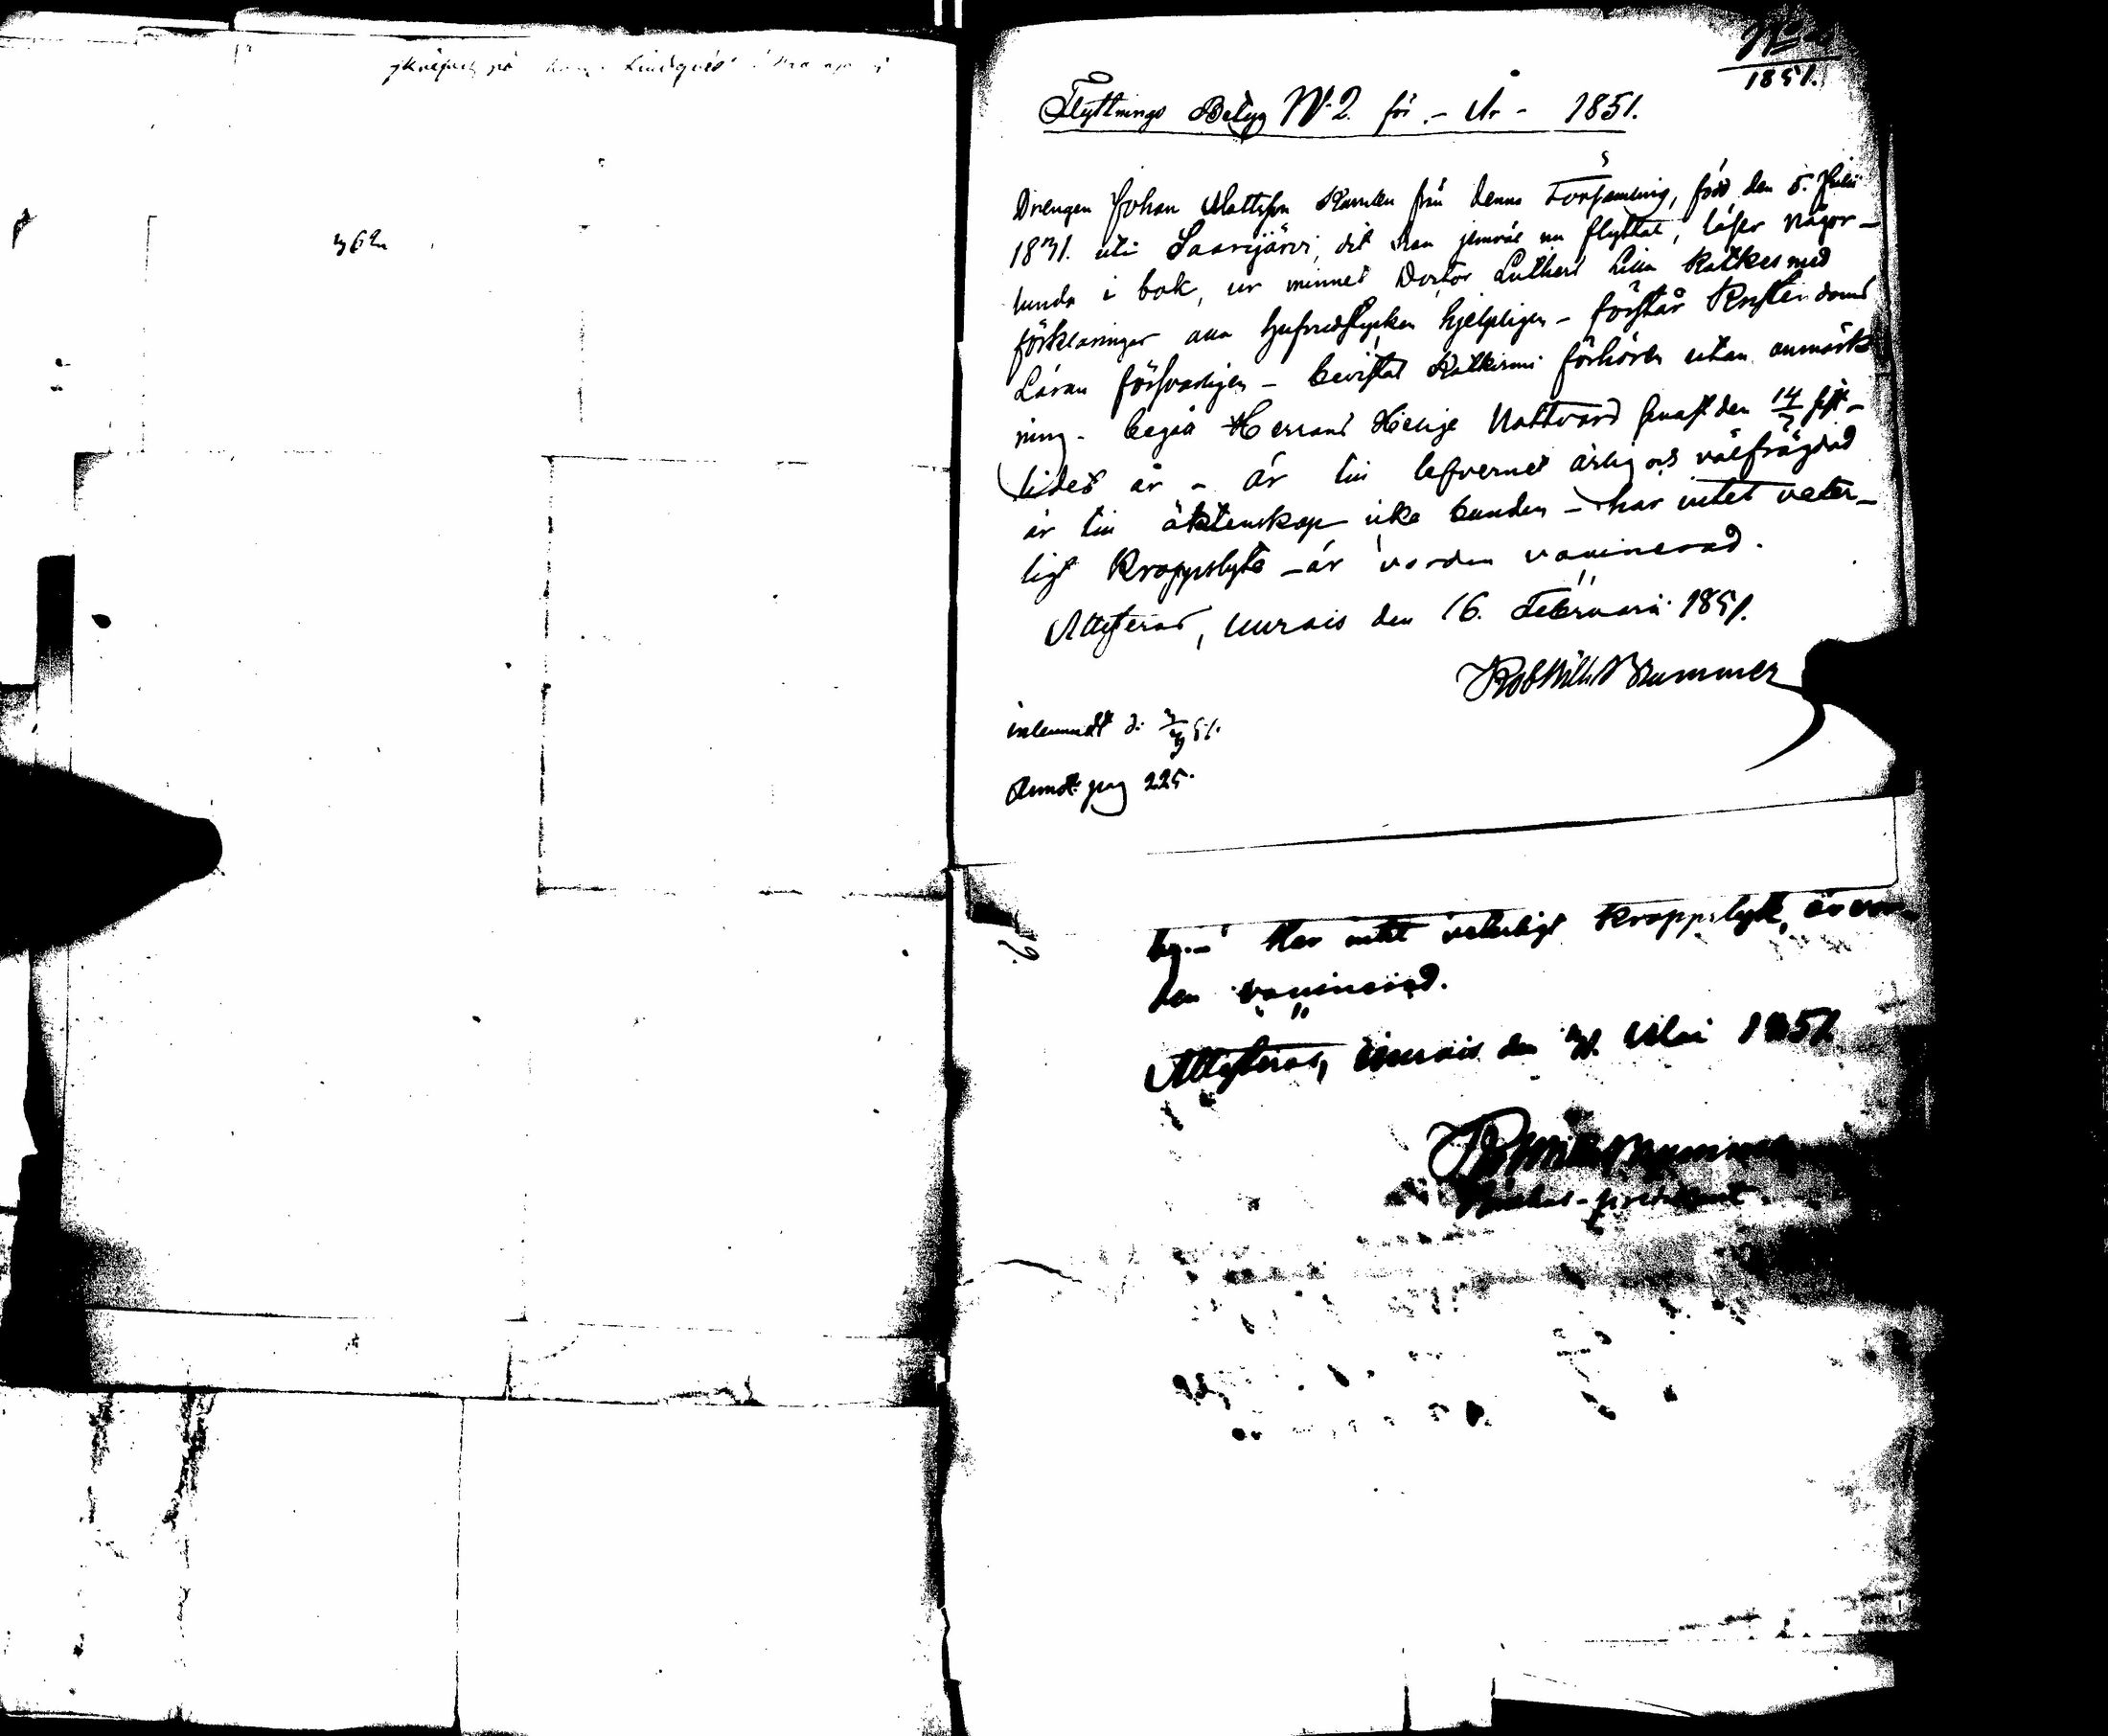 Lindqvist
362
1851.
Flyttnings Betyg N:2. för - År - 1851.
Drengen Johan Mattsson från denna Församling, född den 5. Julii
1831. uti Saarijärvi, dit han jemväl nu flyttat, läser någor-
lunda i bok, ur minnet Doctor Luthers Lilla Katkes med
förklaringar alla hufvudstycken hjelpligen - förstår Kristendoms
Läran försvarligen - bevistat Katkismi förhören utan anmärk
ning - begått Herrans Helige Nattvard senast den 14/7 sist-
lidet år - är till lefvernet ärlig och välfrägdad
är till äktenskap icke bunden - har intet veter-
ligt Kroppslyte - är vorden vaccinerad.
Attesterad, Uurais den 16. Februarii 1851.
Rob Wilh Brummer
inlemnadt d: 51.
Anmält pag 225.
Har intet veterligt Kroppslyte, är vor-
den vaccinerad.
Attesterad, Uurais den Mai 1851